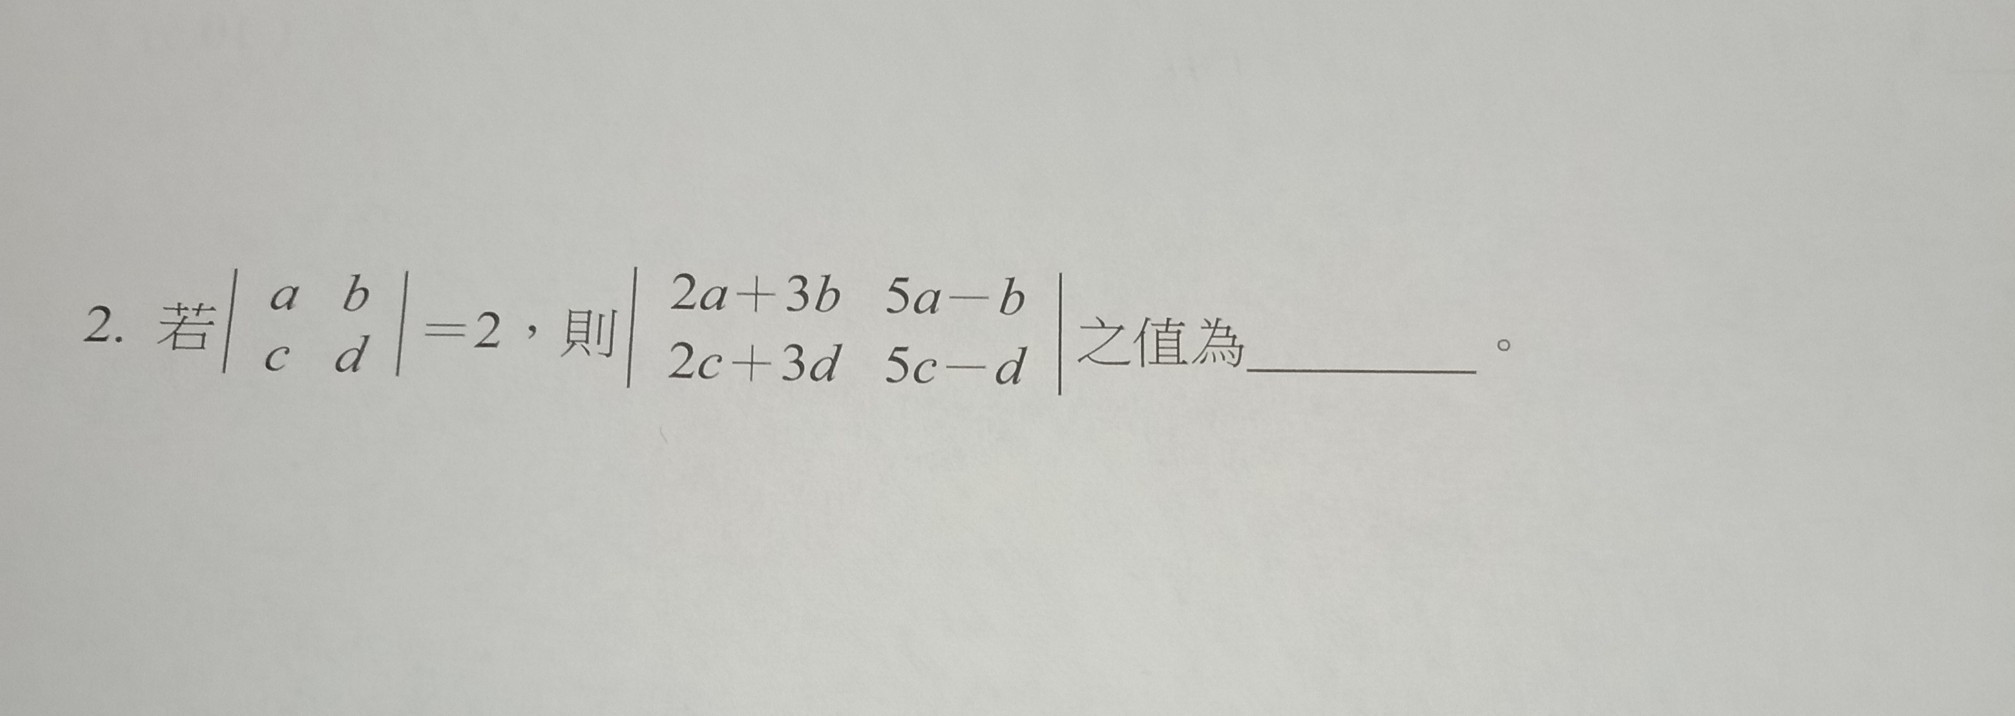 2. 若| a b ; c d |=2，則| 2a+3b 5a−b ; 2c+3d 5c−d |之值為________。